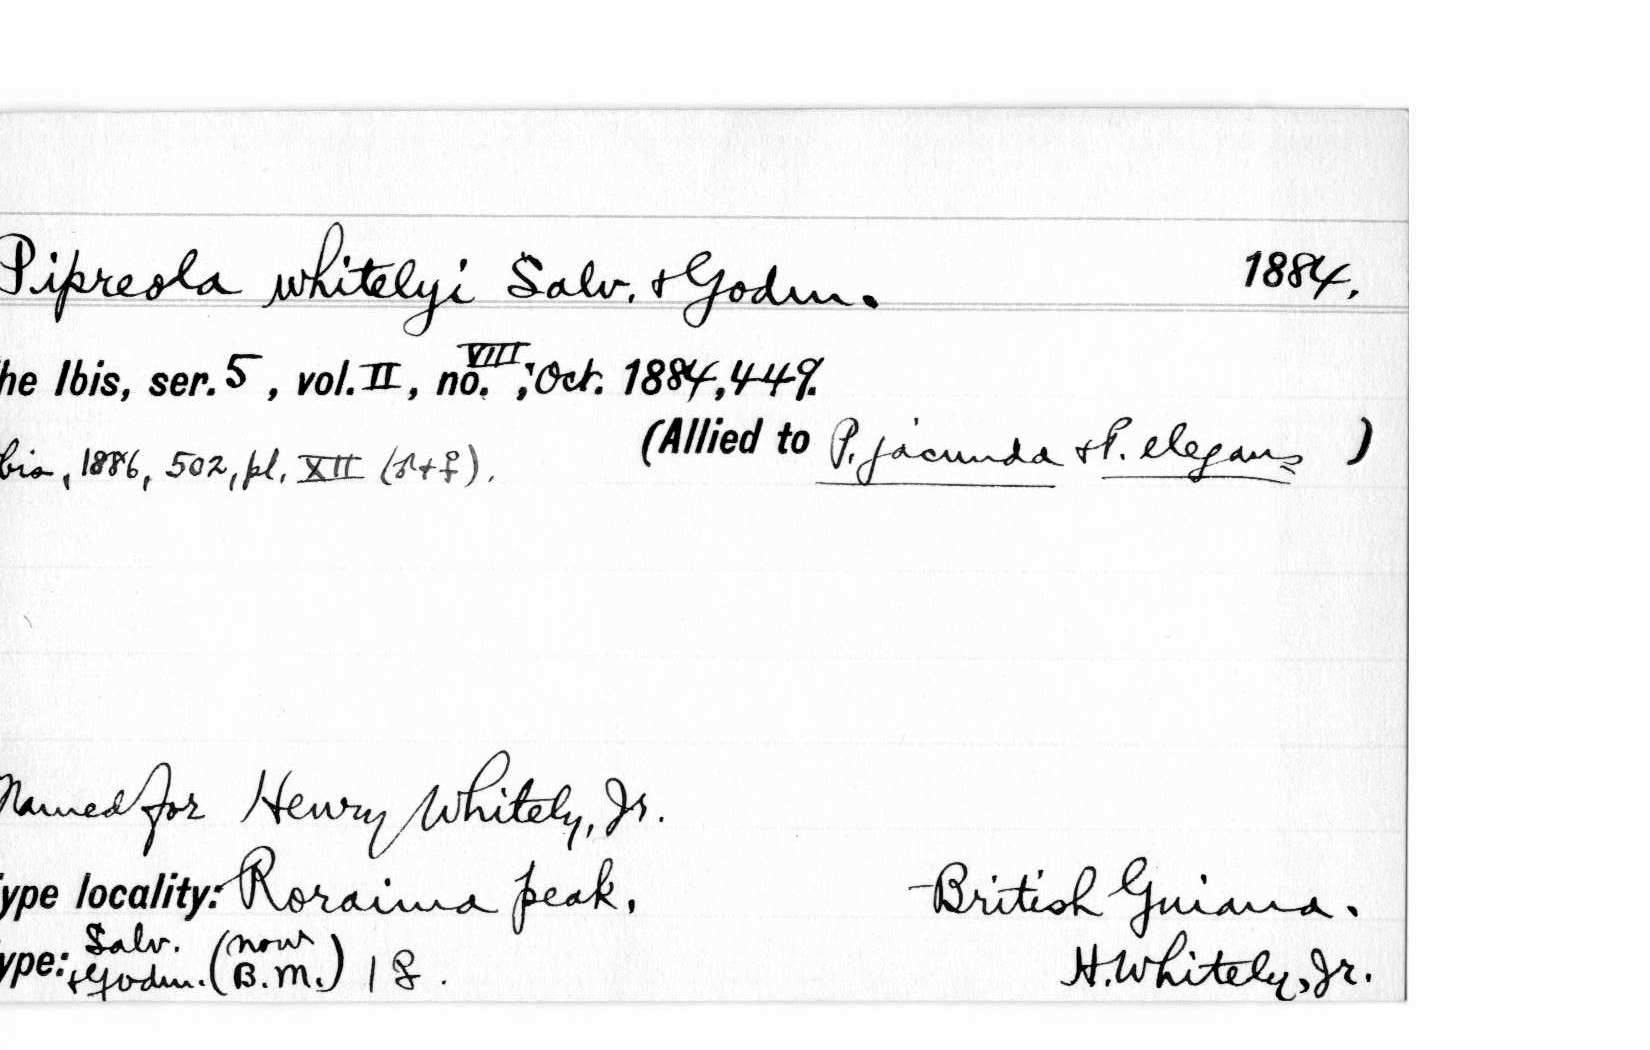 Pipreola whitelyi Salv. & Godm. 1884.
he Ibis, ser. 5, vol. II, no. VIII; Oct. 1884, 449.
(Allied to P. jucunda & P. elegans)
bis, 1886, 502, pl. XII (♂ + ♀).
Named for Henry Whitely, Jr.
ype locality: Roraima peak, British Guiana.
ype: Salv. & Godm. (now B.M.) 1 ♀. H. Whitely, Jr.